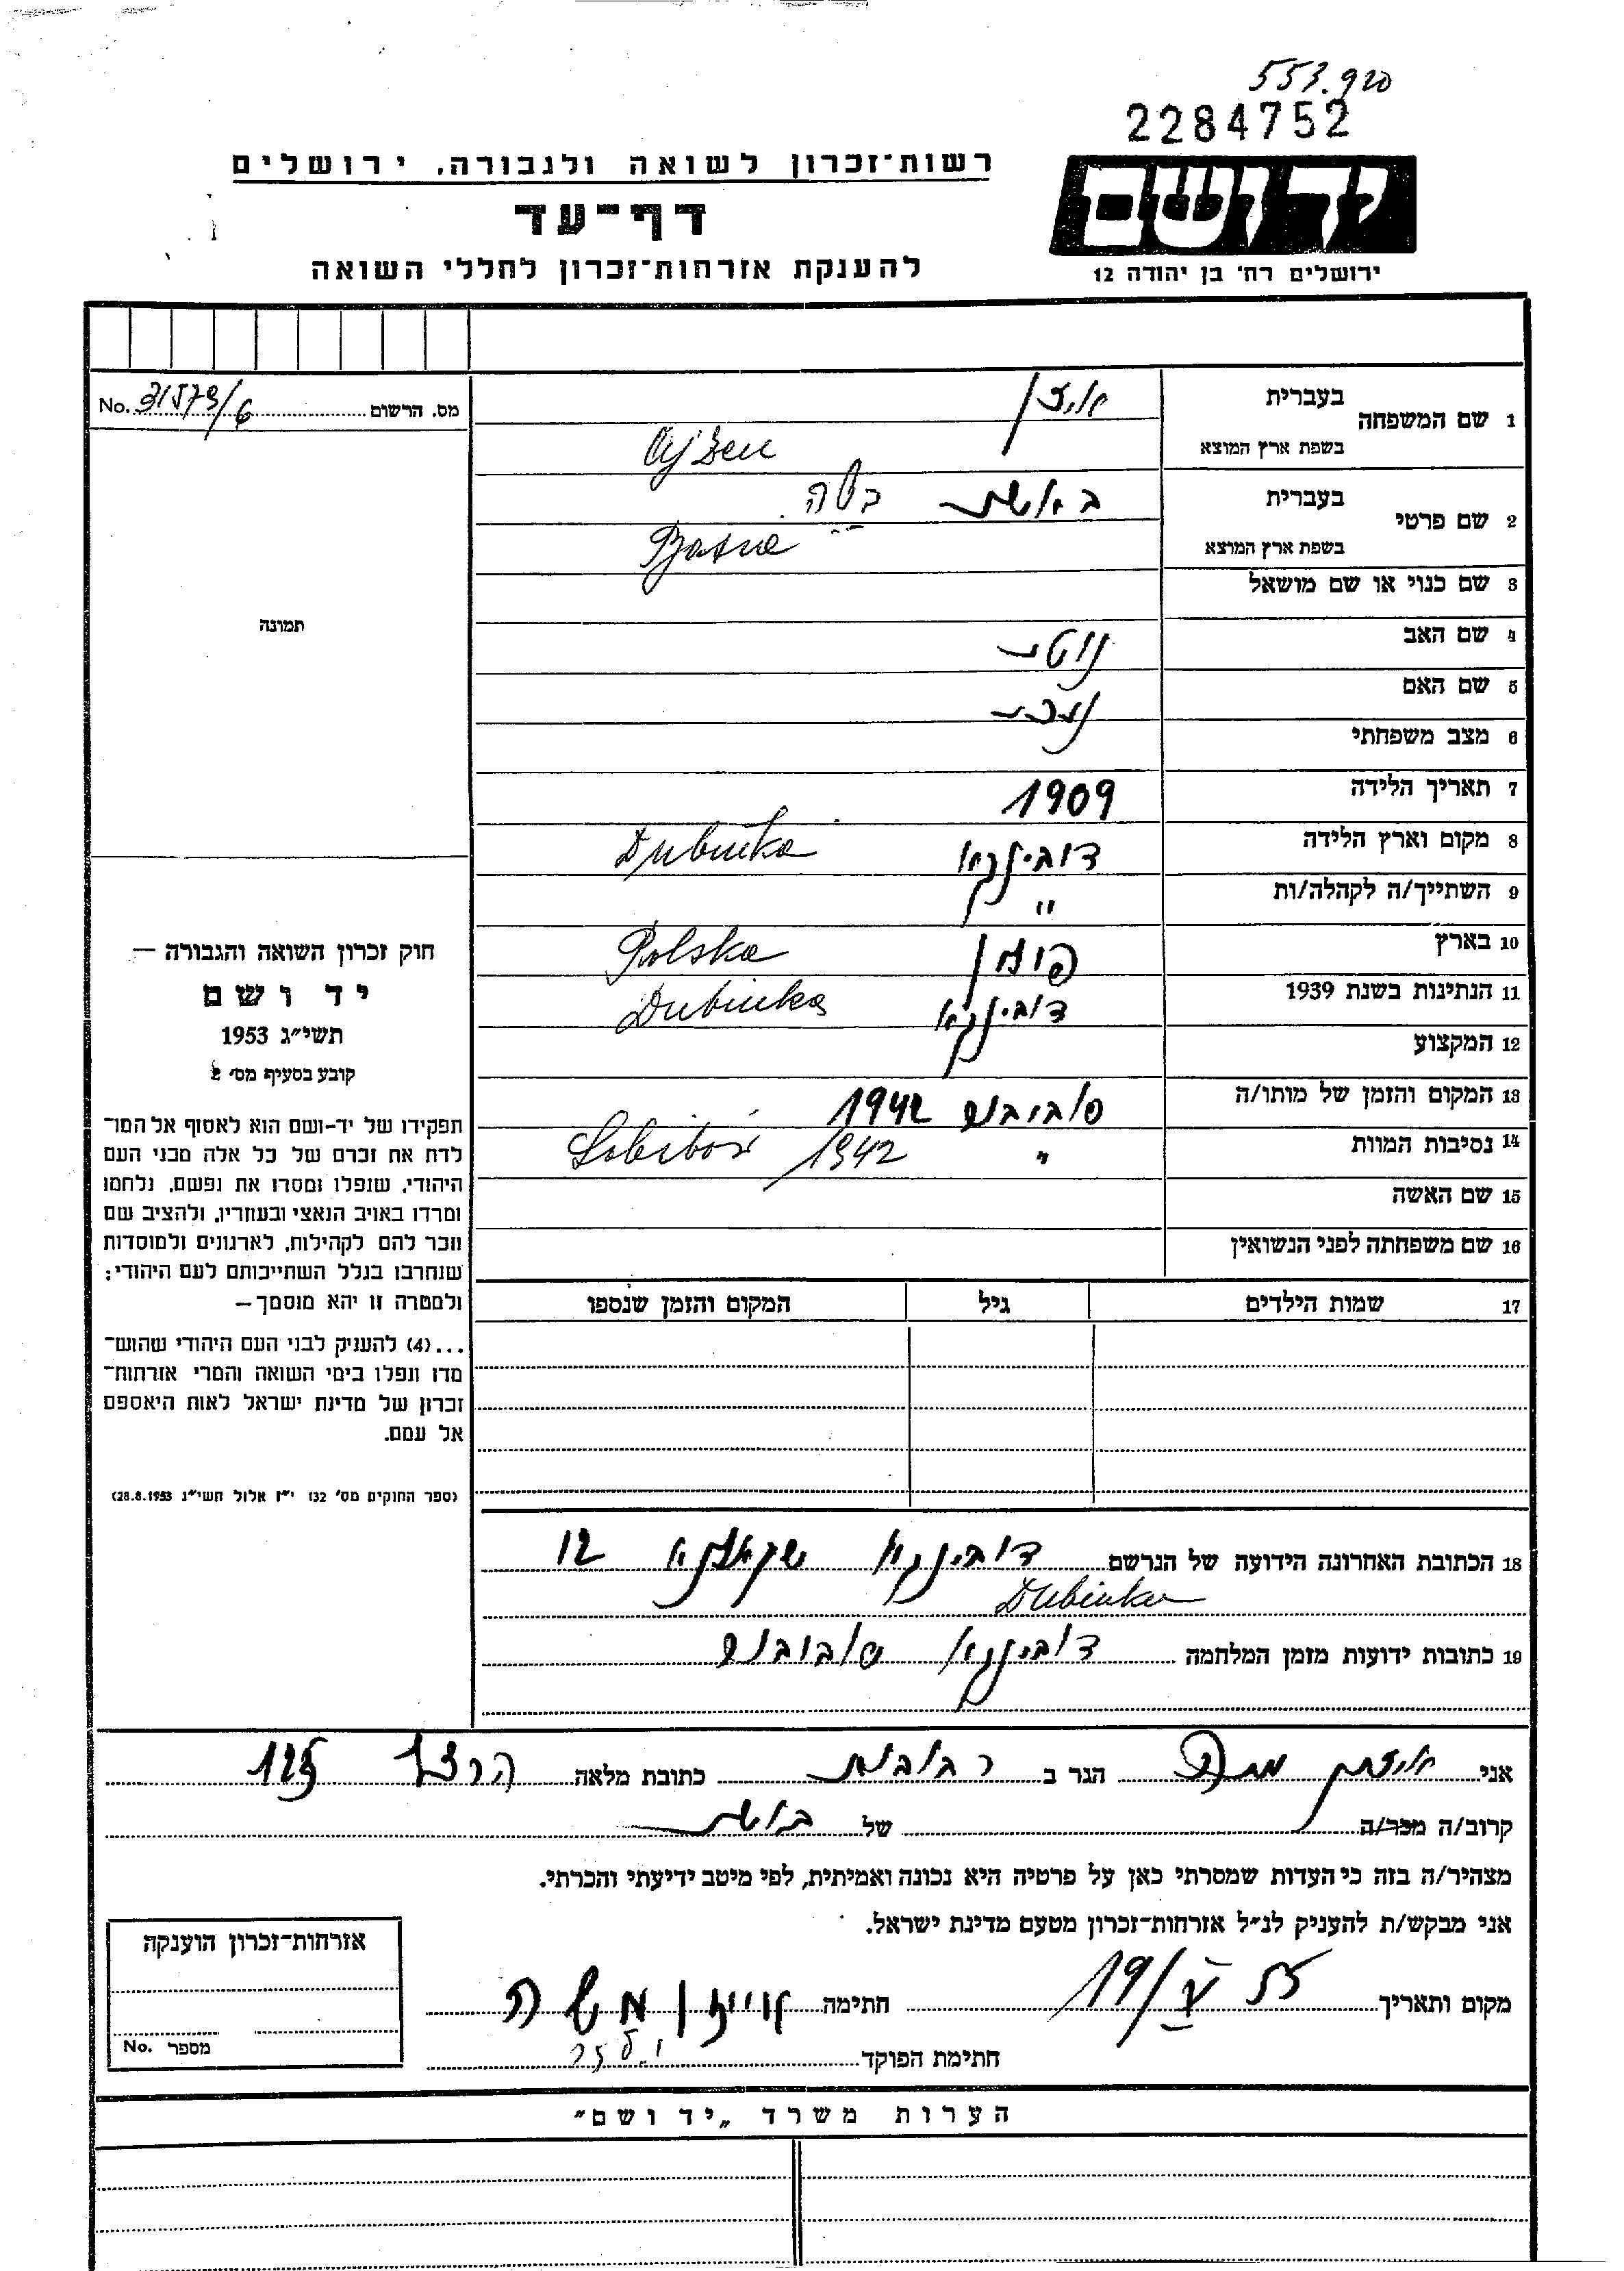 553.920
2284752
יד ושם
ירושלים רח' בן יהודה 12
רשות־זכרון לשואה ולגבורה, ירושלים
דף־עד
להענקת אזרחות־זכרון לחללי השואה
מס. הרשום No. 31573/6
תמונה
חוק זכרון השואה והגבורה —
יד ושם
תשי"ג 1953
קובע בסעיף מס' 2
תפקידו של יד-ושם הוא לאסוף אל המו־
לדת את זכרם של כל אלה מבני העם
היהודי, שנפלו ומסרו את נפשם, נלחמו
ומרדו באויב הנאצי ובעוזריו, ולהציב שם
וזכר להם לקהילות, לארגונים ולמוסדות
שנחרבו בגלל השתייכותם לעם היהודי;
ולמטרה זו יהא מוסמך—
...(4) להעניק לבני העם היהודי שהוש־
מדו ונפלו בימי השואה והמרי אזרחות־
זכרון של מדינת ישראל לאות היאספם
אל עמם.
(ספר החוקים מס' 132 י"ז אלול תשי"ג 28.8.1953)
1 שם המשפחה בעברית
בשפת ארץ המוצא Ajzen
2 שם פרטי בעברית בטה
בשפת ארץ המוצא
3 שם כנוי או שם מושאל
4 שם האב
5 שם האם
6 מצב משפחתי
7 תאריך הלידה 1909
8 מקום וארץ הלידה דובינקא Dubinka
9 השתייך/ה לקהלה/ות "
10 בארץ פולין Polska
11 הנתינות בשנת 1939 דובינקא Dubinka
12 המקצוע
13 המקום והזמן של מותו/ה 1942
14 נסיבות המוות " Sobibór 1942
15 שם האשה
16 שם משפחתה לפני הנשואין
17 שמות הילדים גיל המקום והזמן שנספו
18 הכתובת האחרונה הידועה של הנרשם דובינקא 12
Dubinka
19 כתובות ידועות מזמן המלחמה דובינקא
אני הגר ב רחובות כתובת מלאה הרצל 125
קרוב/ה מכר/ה של
מצהיר/ה בזה כי העדות שמסרתי כאן על פרטיה היא נכונה ואמיתית, לפי מיטב ידיעתי והכרתי.
אני מבקש/ת להעניק לנ"ל אזרחות־זכרון מטעם מדינת ישראל.
מקום ותאריך 19/V 55 חתימה אייזן משה
חתימת הפוקד
אזרחות־זכרון הוענקה
מספר No.
הערות משרד „יד ושם"